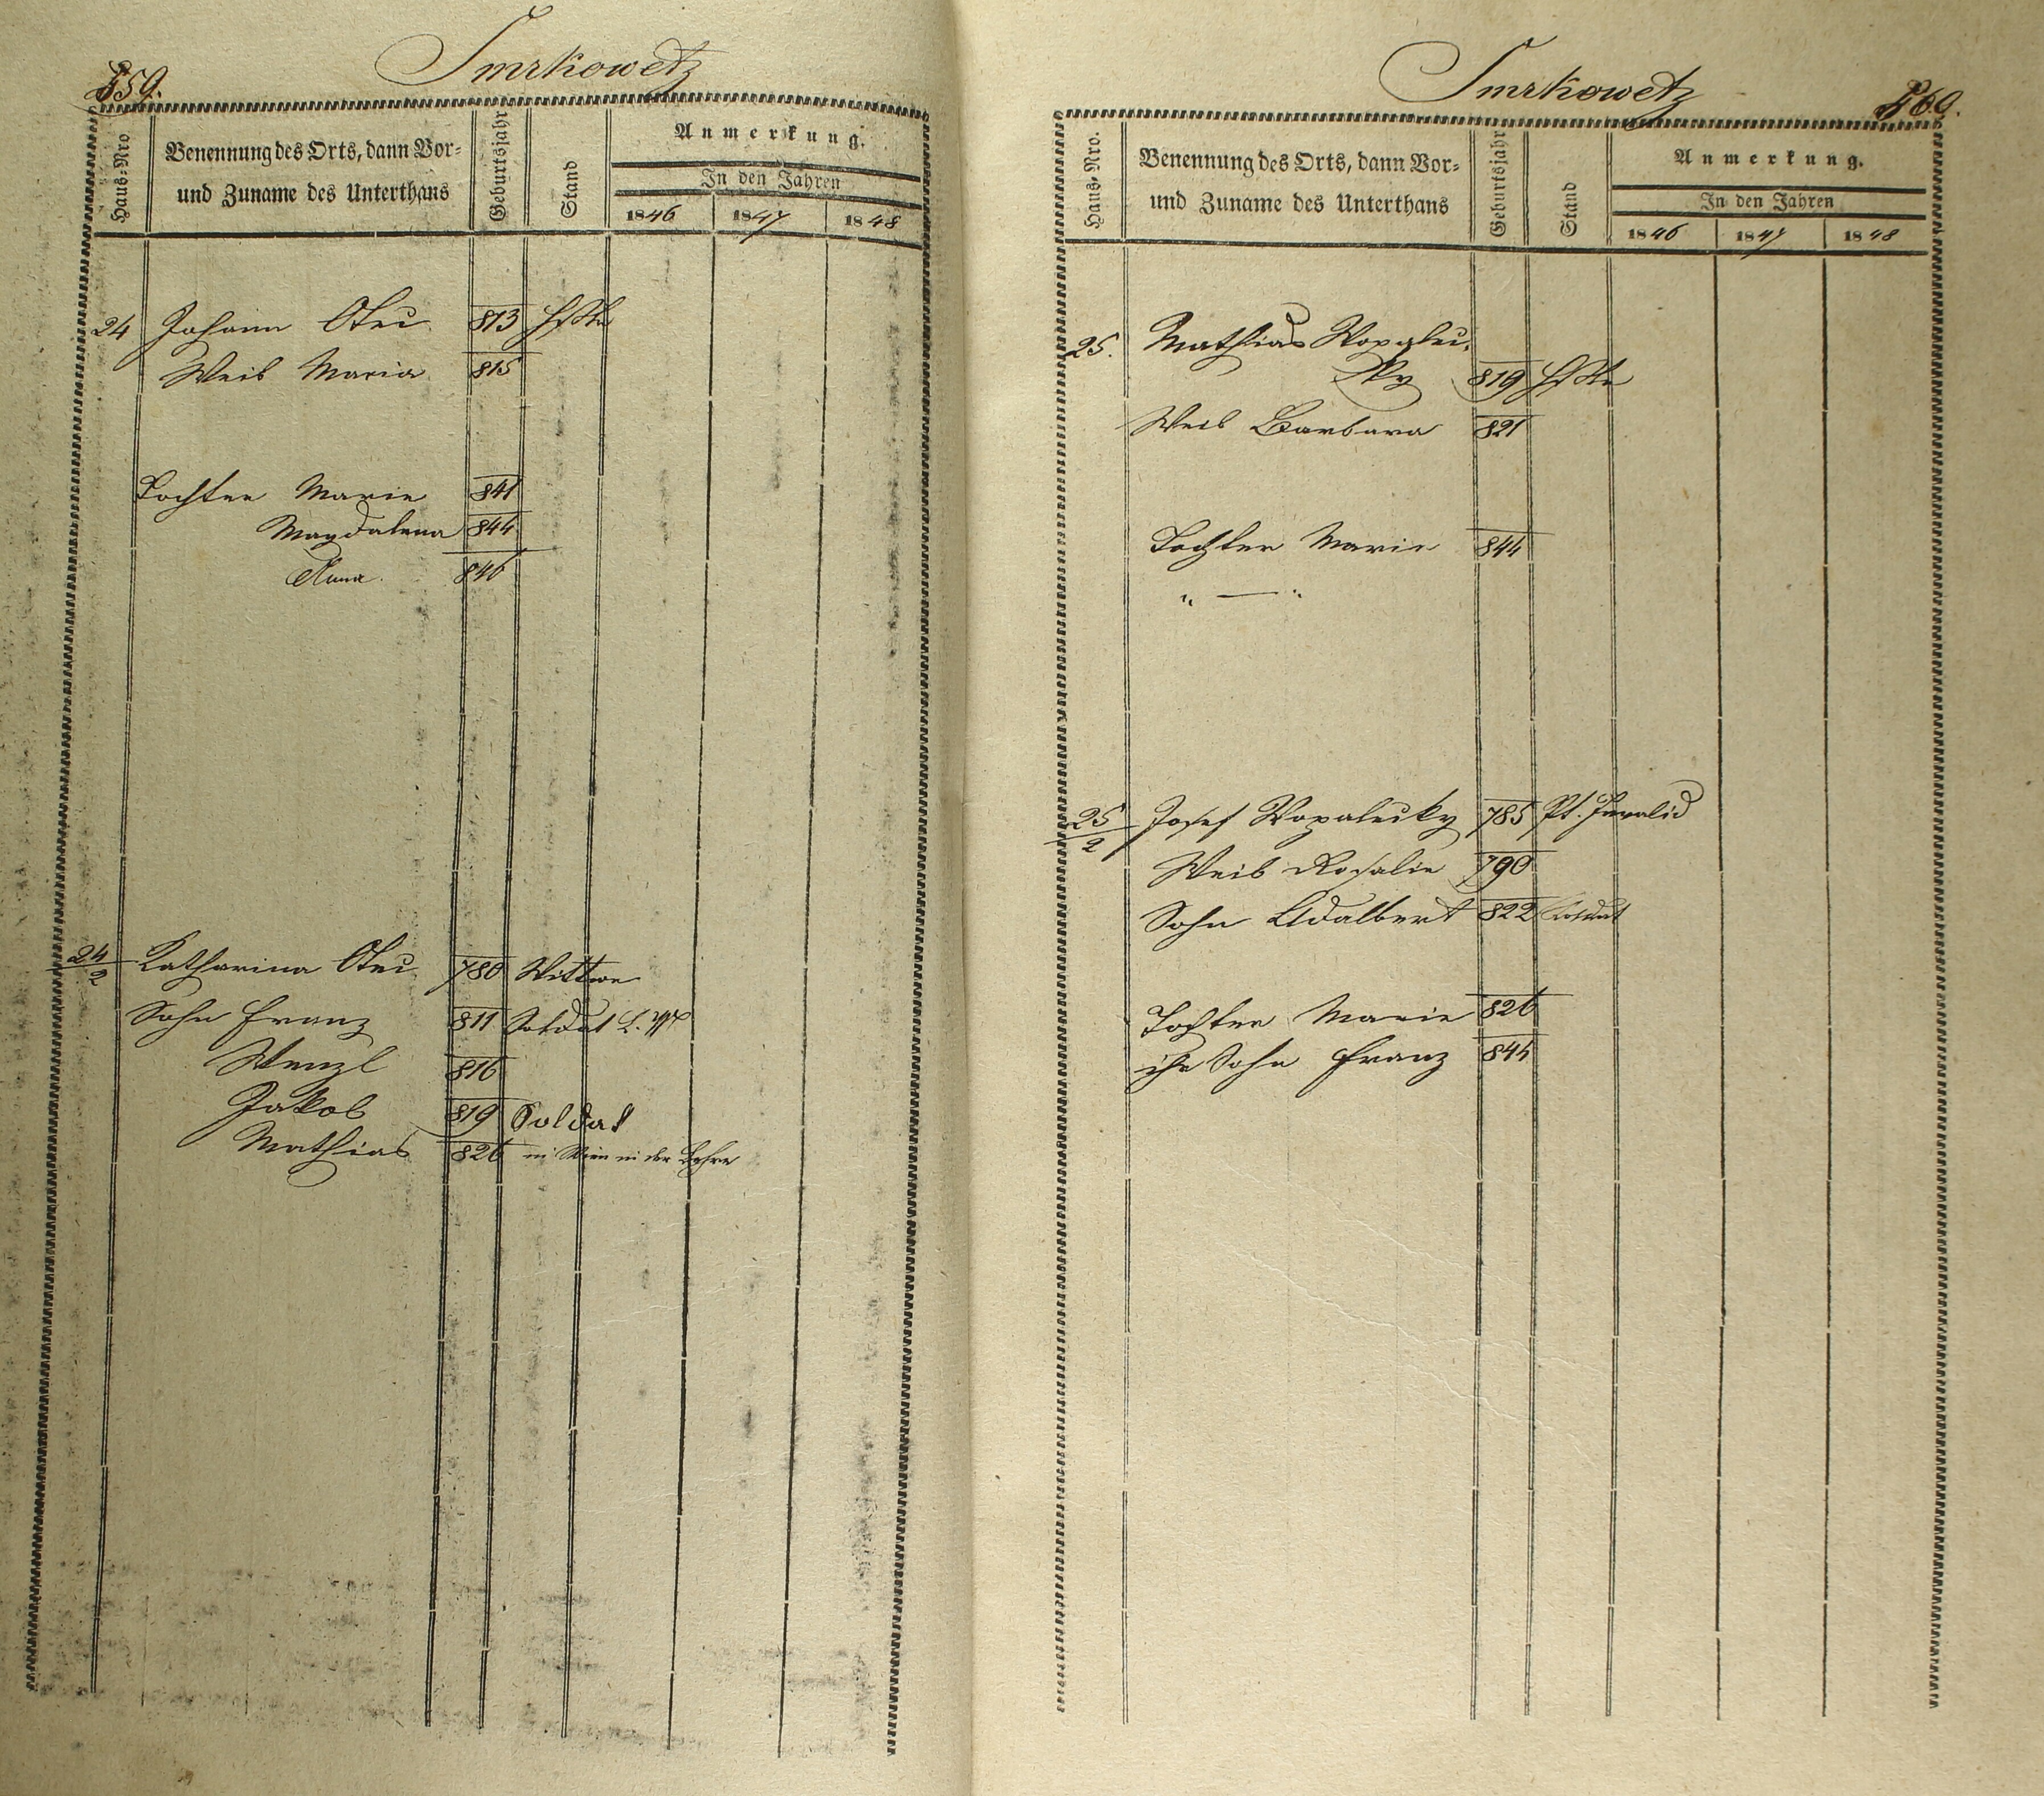 159.
Smrkowetz
Haus-Nro
Benennung des Orts, dann Vor-
und Zuname des Unterthans
Geburtsjahr
Stand
Anmerkung.
In den Jahren
1846 1847 1848
24 Johann 813
Weib Maria 815
Tochter Marie 841
Magdalena 844
Anna 846
24/2 Katharina 780 Wittwe
Sohn Franz 811 Soldat
Wenzl 816
Jakob 819 Soldat
Mathias 826 in Wien in der Lehre
Smrkowetz
160.
Haus-Nro.
Benennung des Orts, dann Vor-
und Zuname des Unterthans
Geburtsjahr
Stand
Anmerkung.
In den Jahren
1846 1847 1848
25. Mathias Wopalec-
ky 819
Weib Barbara 821
Tochter Marie 844
" — "
25/2 Josef Wopalecky 785 Pt. Invalid
Weib Rosalie 790
Sohn Adalbert 822 Soldat
Tochter Marie 826
ihr Sohn Franz 844